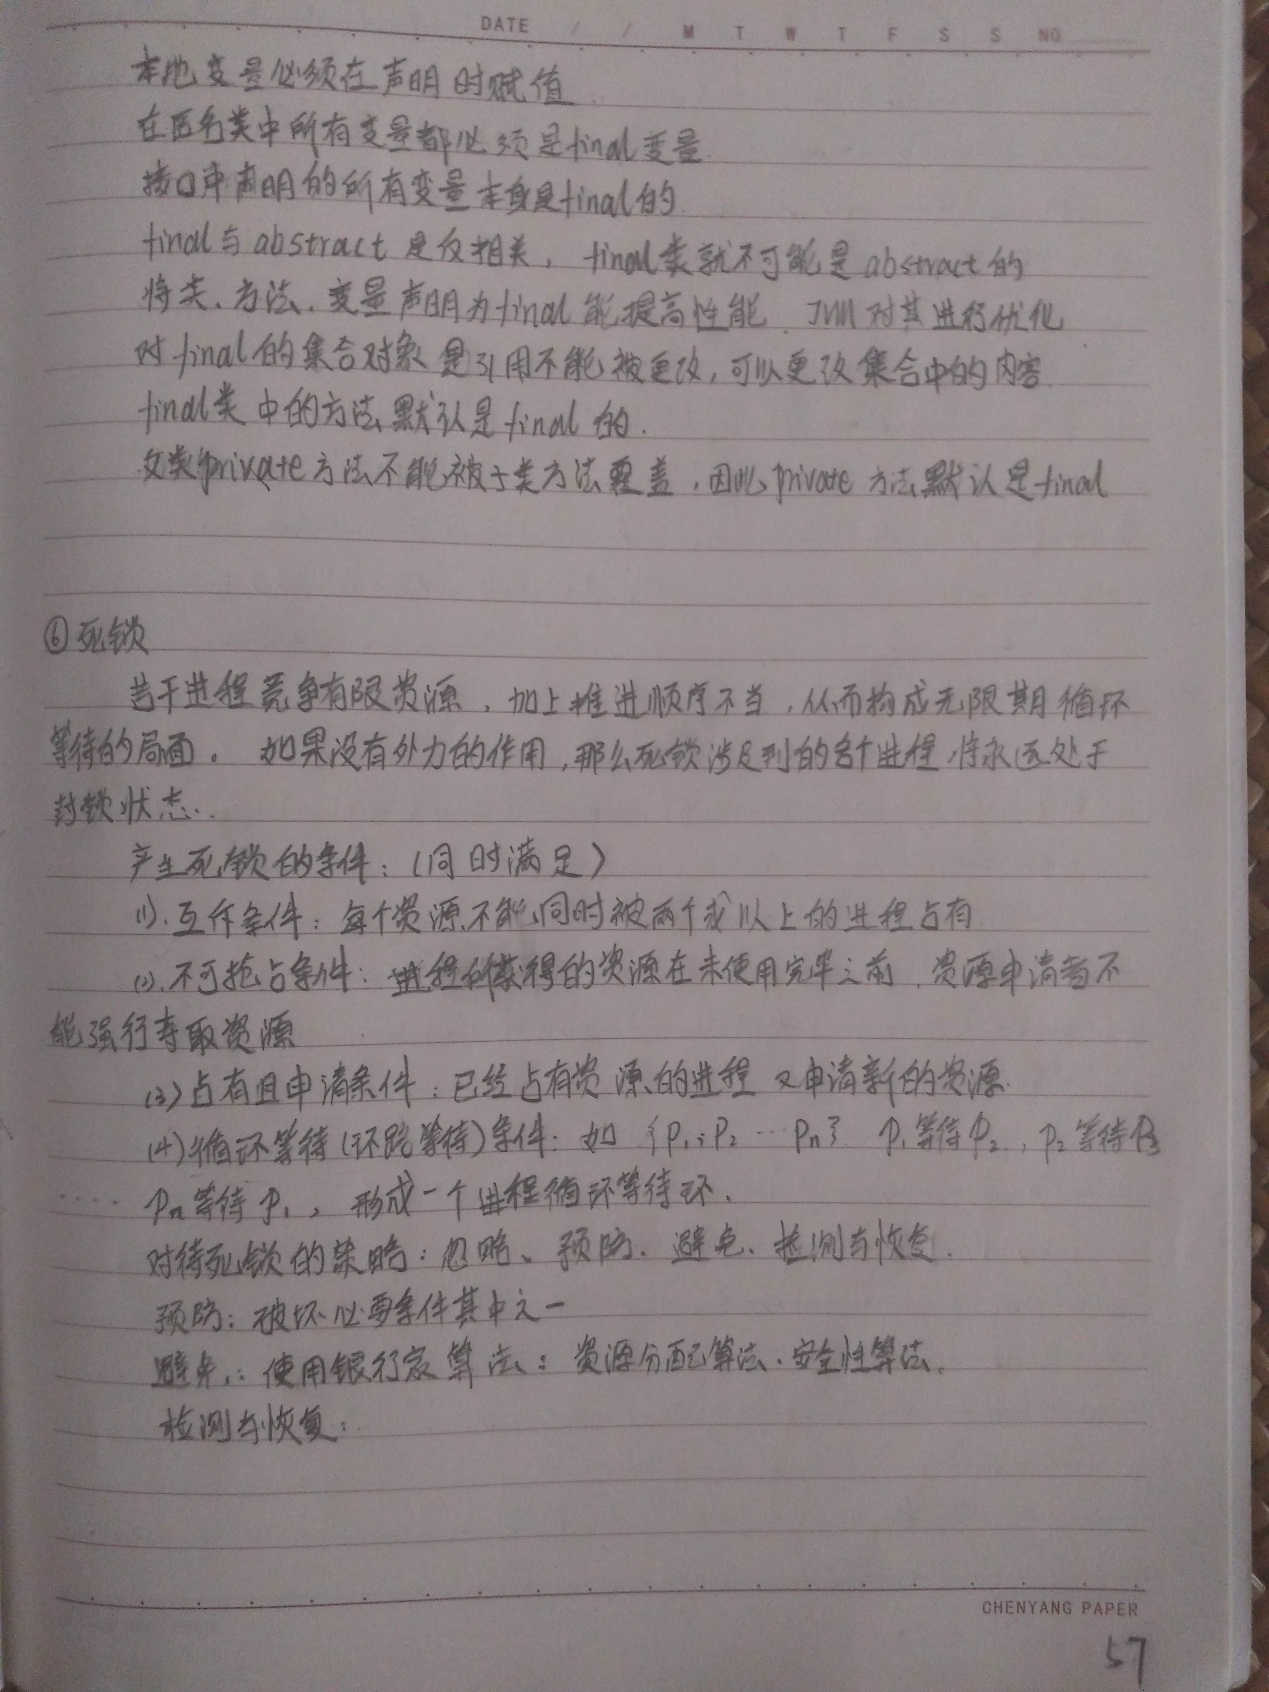 DATE / / M T W T F S S NO
本地变量必须在声明时赋值
在匿名类中所有变量都必须是final变量.
接口中声明的所有变量本身是final的.
final与abstract是反相关，final类就不可能是abstract的
将类、方法、变量声明为final能提高性能，JVM对其进行优化
对final的集合对象是引用不能被更改，可以更改集合中的内容.
final类中的方法默认是final的.
父类private方法不能被子类方法覆盖，因此private方法默认是final
⑥死锁
若干进程竞争有限资源，加上推进顺序不当，从而构成无限期循环
等待的局面。如果没有外力的作用，那么死锁涉及到的各个进程将永远处于
封锁状态..
产生死锁的条件：(同时满足)
(1).互斥条件：每个资源不能同时被两个或以上的进程占有.
(2).不可抢占条件：进程所获得的资源在未使用完毕之前，资源申请者不
能强行夺取资源
(3)占有且申请条件：已经占有资源的进程又申请新的资源.
(4)循环等待(环路等待)条件：如{P1,P2…Pn} P1等待P2.，P2等待P3
.....Pn等待P1，形成一个进程循环等待环.
对待死锁的策略：忽略、预防、避免、检测与恢复.
预防：破坏必要条件其中之一
避免：使用银行家算法：资源分配算法、安全性算法.
检测与恢复：
CHENYANG PAPER
57